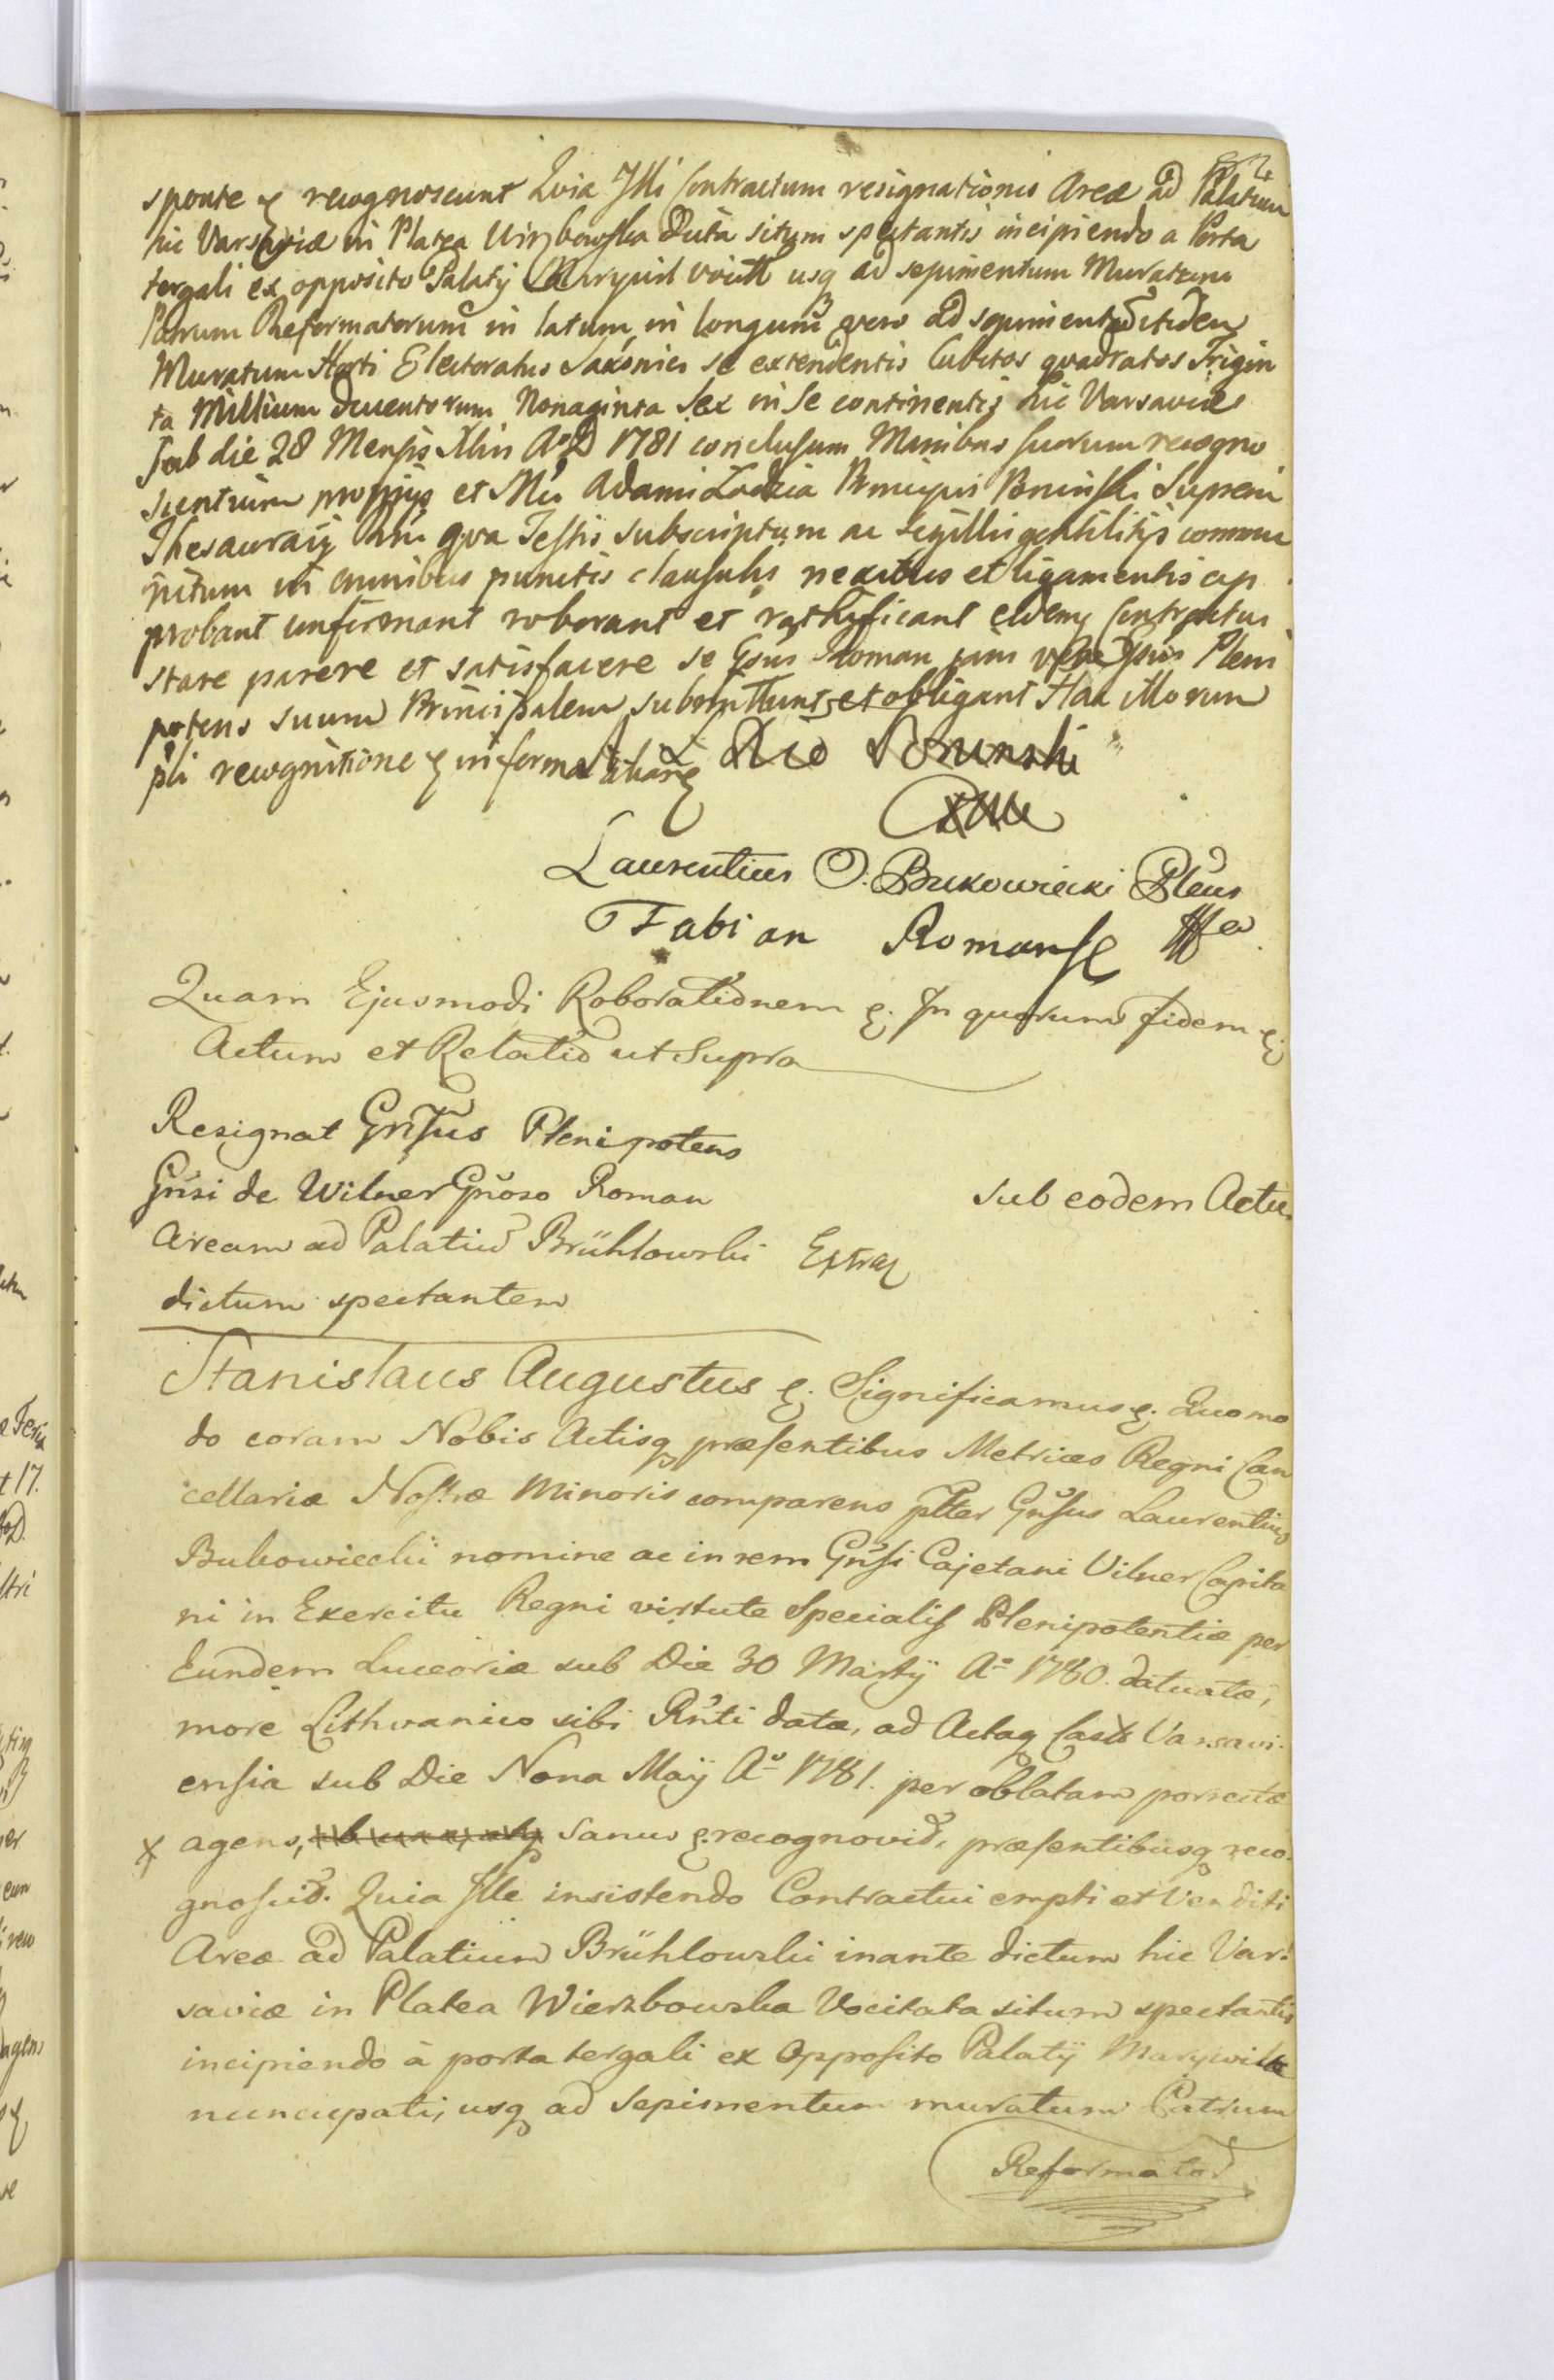 sponte & recognoscunt Quia Illi Contractum resignationis Areæ ad Palatium
hic Varsaviæ in Platea Wirzbowska Dicta situm spectantis incipiendo a Porta
tergali ex opposito Palatÿ Marywil usq ad sepimentum Muratum
Patrum Reformatorum in latum, in longum vero ad sepimentũ itidem
Muratum Horti Electoratus Saxonici se extendentis Cubitos quadratos Trigin
ta Millium Ducentorum Nonaginta Sex in se continentis hic Varsaviæ
Sub die 28 Mensis Aº D 1781 conclusum Manibus suorum recogno
scentium proprijs et Adami Łodzia Principis Poninski Supremi
Thesaurarij qva Testis subscriptum ac sigillis gentilitijs commu
nitum in omnibus punctis clausulis nexibus et ligamentis ap
probant confirmant roborant et rathificant eidemq Contractui
stare parere et satisfacere se Gsus Roman jam vero Gsus Pleni
potens suum Principalem submittunt et obligant Hac Illorum
pti recognitione & in forma
Poninski
Laurentius Bukowiecki Plens
Fabian Roman
Quam Ejusmodi Roborationem &. In quorum fidem &.
Actum et Relatio ut Supra
Resignat Gnsus Plenipotens
Gnsi de Wilner Gnoso Roman sub eodem Actu
Aream ad Palatiũ Brühlowski Extraq
dictum spectantem
Stanislaus Augustus &. Significamus &. Quomo
do coram Nobis Actisq præsentibus Metrices Regni Can
cellariæ Nostræ Minoris comparens pltter Gnsus Laurentius
Bukowiecki nomine ac in rem Gnsi Cajetani Vilner Capita
ni in Exercitu Regni virtute Specialis Plenipotentiæ per
Eundem Luceoriæ sub Die 30 Martÿ Aº 1780. datuatæ,
more Lithvanico sibi Rnti datæ, ad Actaq Cast Varsavi
ensia sub Die Nona Maÿ Aº 1781. per oblatam porrectæ
x agens, sanus & recognovit, præsentibusq reco
gnoscit. Quia Ille insistendo Contractui empti et Venditi
Areæ ad Palatium Brühlowski inante dictum hic Var
saviæ in Platea Wierzbowska Vocitata situm spectantis
incipiendo à porta tergali ex Opposito Palatÿ Marywille
nuncupati, usq ad Sepimentum muratum Patrum
Reformator